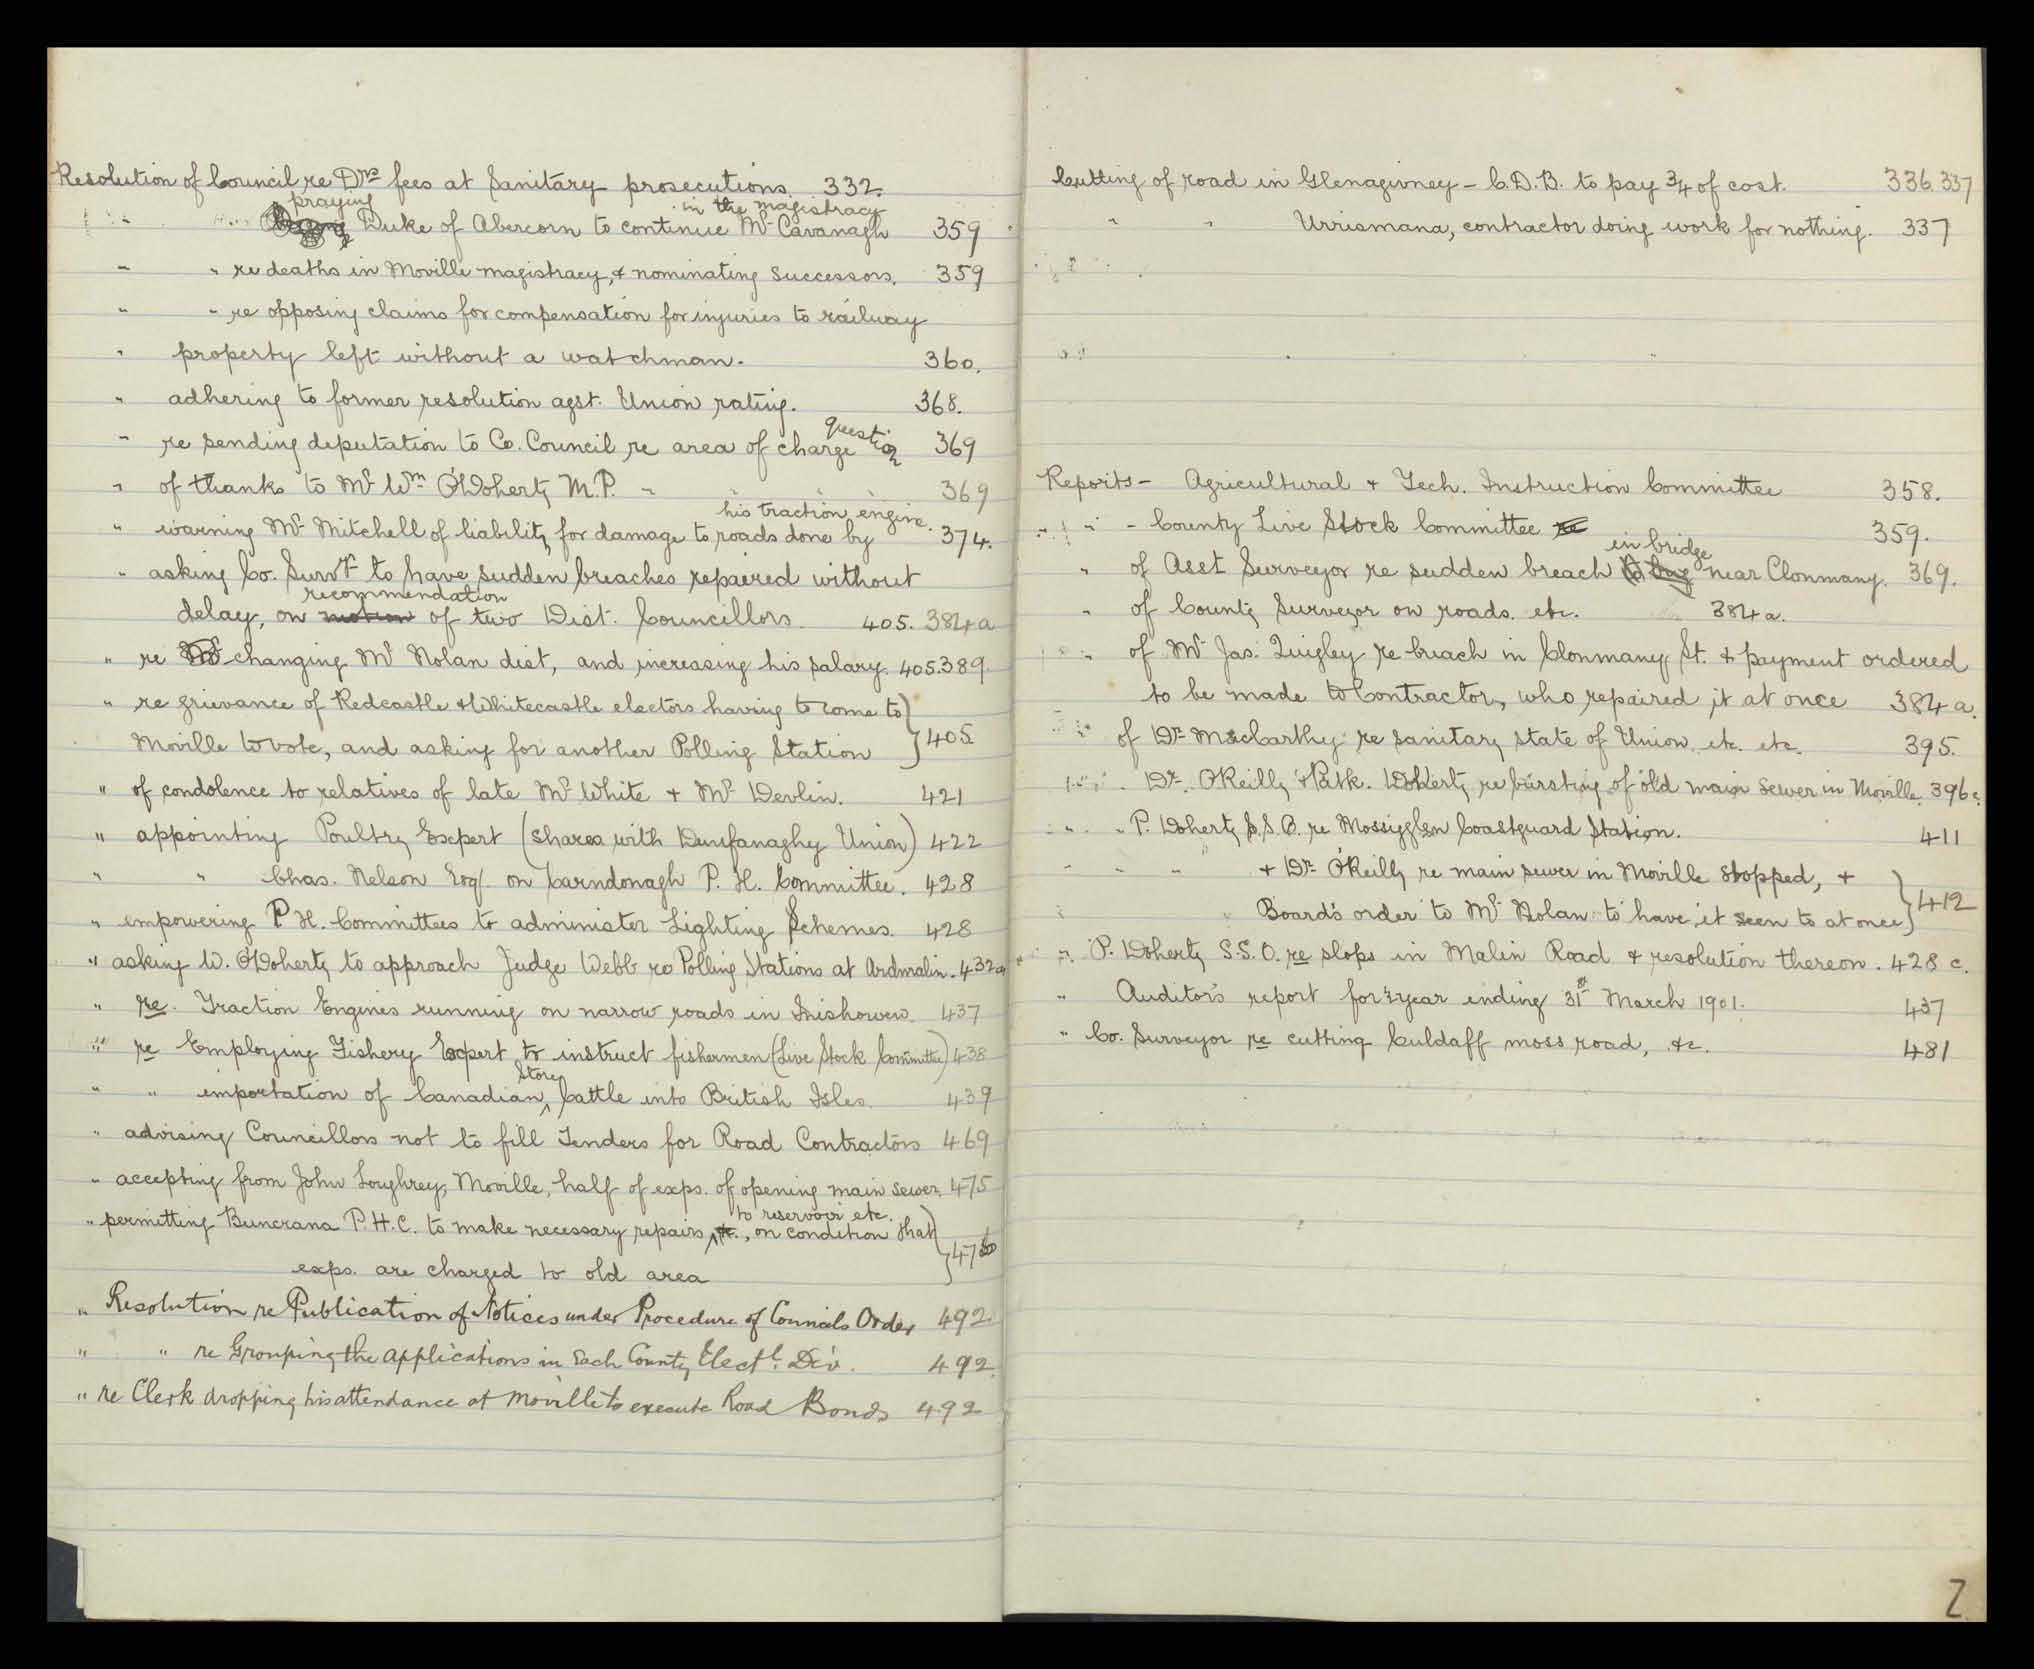 Resolution of Council re Drs fees at Sanitary prosecutions. 332.
praying in the magistracy
" " Duke of Abercorn to continue Mr Cavanagh 359
" " re deaths in Moville magistracy, & nominating successors. 359
" " re opposing claims for compensation for injuries to railway
" property left without a watchman. 360.
" adhering to former resolution agst. Union rating. 368.
" re sending deputation to Co. Council re area of charge question 369
" of thanks to Mr Wm O'Doherty M.P. " " " " 369
his traction engine.
" warning Mr Mitchell of liability for damage to roads done by 374.
" asking Co. Survr to have sudden breaches repaired without
recommendation
delay, on motion of two Dist. Councillors. 405. 384a
" re changing Mr Nolan dist, and increasing his salary. 405.389
" re grievance of Redcastle & Whitecastle electors having to come to
Moville to vote, and asking for another Polling Station } 405
" of condolence to relatives of late Mr White & Mr Devlin. 421
" appointing Poultry Expert (shares with Dunfanaghy Union) 422
" " Chas. Nelson Esq. on Carndonagh P. H. Committee. 428
" empowering P H. Committees to administer Lighting Schemes. 428
" asking W. O'Doherty to approach Judge Webb re Polling Stations at Ardmalin. 432a
" re. Traction Engines running on narrow roads in Inishowen. 437
" re Employing Fishery Expert to instruct fishermen (Live Stock Committee) 438
Store
" " importation of Canadian ^ Cattle into British Isles. 439
" advising Councillors not to fill Tenders for Road Contractors 469
" accepting from John Loughrey, Moville, half of exps. of opening main sewer. 475
to reservoir etc.
" permitting Buncrana P.H.C. to make necessary repairs ^ &c., on condition that
exps. are charged to old area }
" Resolution re Publication of Notices under Procedure of Councils Order 492.
" " re Grouping the applications in Each County Electl. Div. 492.
" re Clerk dropping his attendance at Moville to execute Road Bonds 492
Cutting of road in Glenagivney - C.D.B. to pay 3/4 of cost. 336.337
" " Urrismana, contractor doing work for nothing. 337
Reports - Agricultural & Tech. Instruction Committee 358.
" " - County Live Stock Committee re 359.
in bridge
" of Asst Surveyor re sudden breach near Clonmany. 369.
" of County Surveyor on roads. etc. 384a.
" of Mr Jas. Quigley re breach in Clonmany St. & payment ordered
to be made to Contractor, who repaired it at once 384a.
of Dr MacCarthy re sanitary state of Union. etc. etc. 395.
" Dr. O'Reilly & Patk. Doherty re bursting of old main sewer in Moville. 396c.
" " P. Doherty S.S.O. re Mossyglen Coastguard Station. 411
" " " & Dr O'Reilly re main sewer in Moville stopped, &
Board's order to Mr Nolan to have it seen to at once } 412
" P. Doherty S.S.O. re slops in Malin Road & resolution thereon. 428 c.
" Auditor's report for ½ year ending 31st March 1901. 437
" Co. Surveyor re cutting Culdaff moss road, &c. 481
2